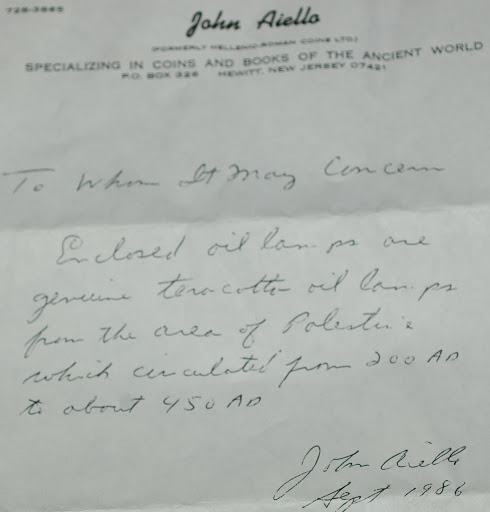 728-3885
John Aiello
(FORMERLY HELLENIC-ROMAN COINS LTD.)
SPECIALIZING IN COINS AND BOOKS OF THE ANCIENT WORLD
P.O. BOX 326 HEWITT, NEW JERSEY 07421
To Whom It May Concern
Enclosed oil lamps are
genuine teracotta oil lamps
from the area of Palestine
which circulated from 200 AD
to about 450 AD
John Aiello
Sept 1986